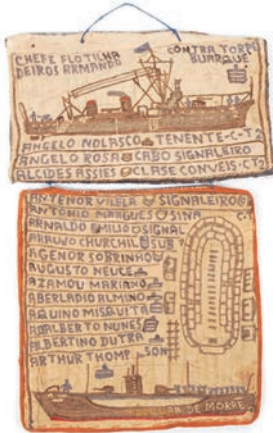 CHEFE FLOTILHA CONTRA TORPE
DEIROS ARMANDO BUARQUE
ANGELO NOLASCO TENENTE-C-T2
ANGELO ROSA CABO SIGNALEIRO
ALCIDES ASSIES CLASE CONVEIS-CT2
ANTENOR VILELA SIGNALEIRO
ANTONIO MARGUES SINA C-T
ARNALDO EMILIO SIGNAL
ARAUJO CHURCHIL SUB
AGENOR SOBRINHO
AUGUSTO NEUCE
AZAMOU MARIANO
ABERLADIO ALMINO
AQUINO MISQUITA
ADALBERTO NUNES
ALBERTINO DUTRA
ARTHUR THOMP SON
DE MORRE